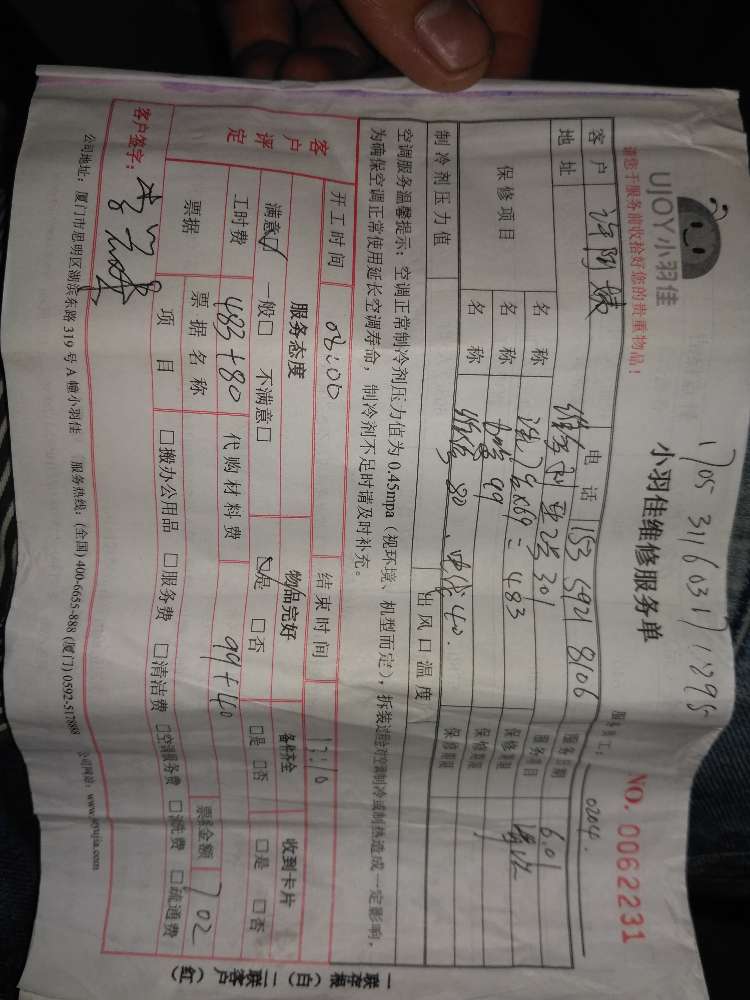 1705 3116 0317 1295
UJOY小羽佳
小羽佳维修服务单
NO. 0062231
请您于服务前收拾好您的贵重物品!
服务员工: 0204.
客户 许阿姨 电话 153 5921 8106 服务日期 6.01
地址 301 服务项目
保修项目 名称 洗7台×69=483 保修期限
名称 99 保修期限
名称 80、40. 保修期限
制冷剂压力值 出风口温度
空调服务温馨提示:空调正常制冷剂压力值为0.45mpa(视环境、机型而定),拆装过程会对空调制冷或制热造成一定影响,
为确保空调正常使用延长空调寿命,制冷剂不足时请及时补充。
开工时间 08:00 结束时间 17:10
客户评定 服务态度 物品完好 备件齐全 收到卡片
满意☑ 一般□ 不满意□ ☑是 □否 □是 □否 □是 □否
工时费 483+80 代购材料费 99+40
票据 票据名称 票据金额 702
项目 □搬办公用品 □服务费 □清洁费 □空调服务费 □洗费 □疏通费
客户签字:
公司地址:厦门市思明区湖滨东路319号A幢小羽佳 服务热线:(全国)400-6655-888 (厦门)0592-517888 公司网站:www.xiaoyujia.com
一联存根(白)二联客户(红)